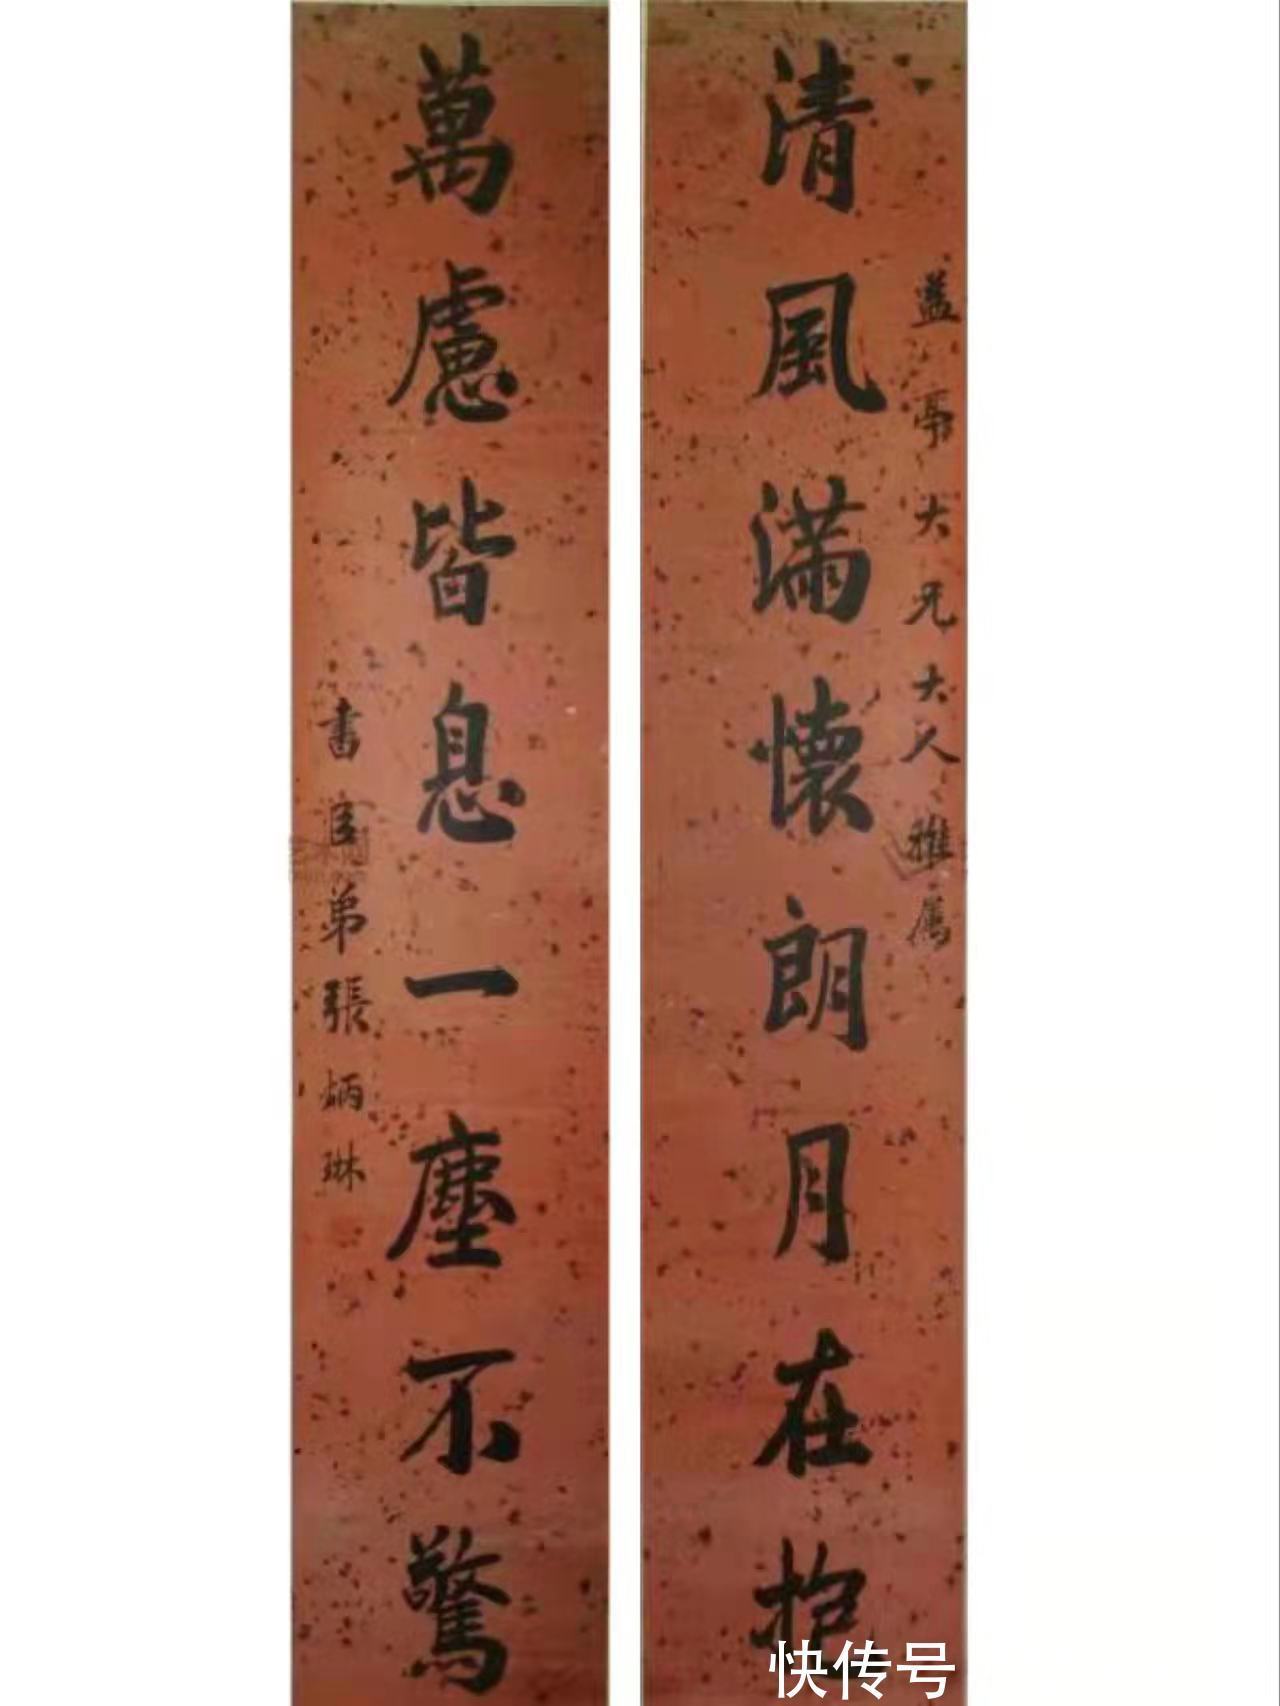 清風滿懷朗月在抱
蓋亭大兄大人雅属
萬慮皆息一塵不驚
張炳琳
弟
書
快传号